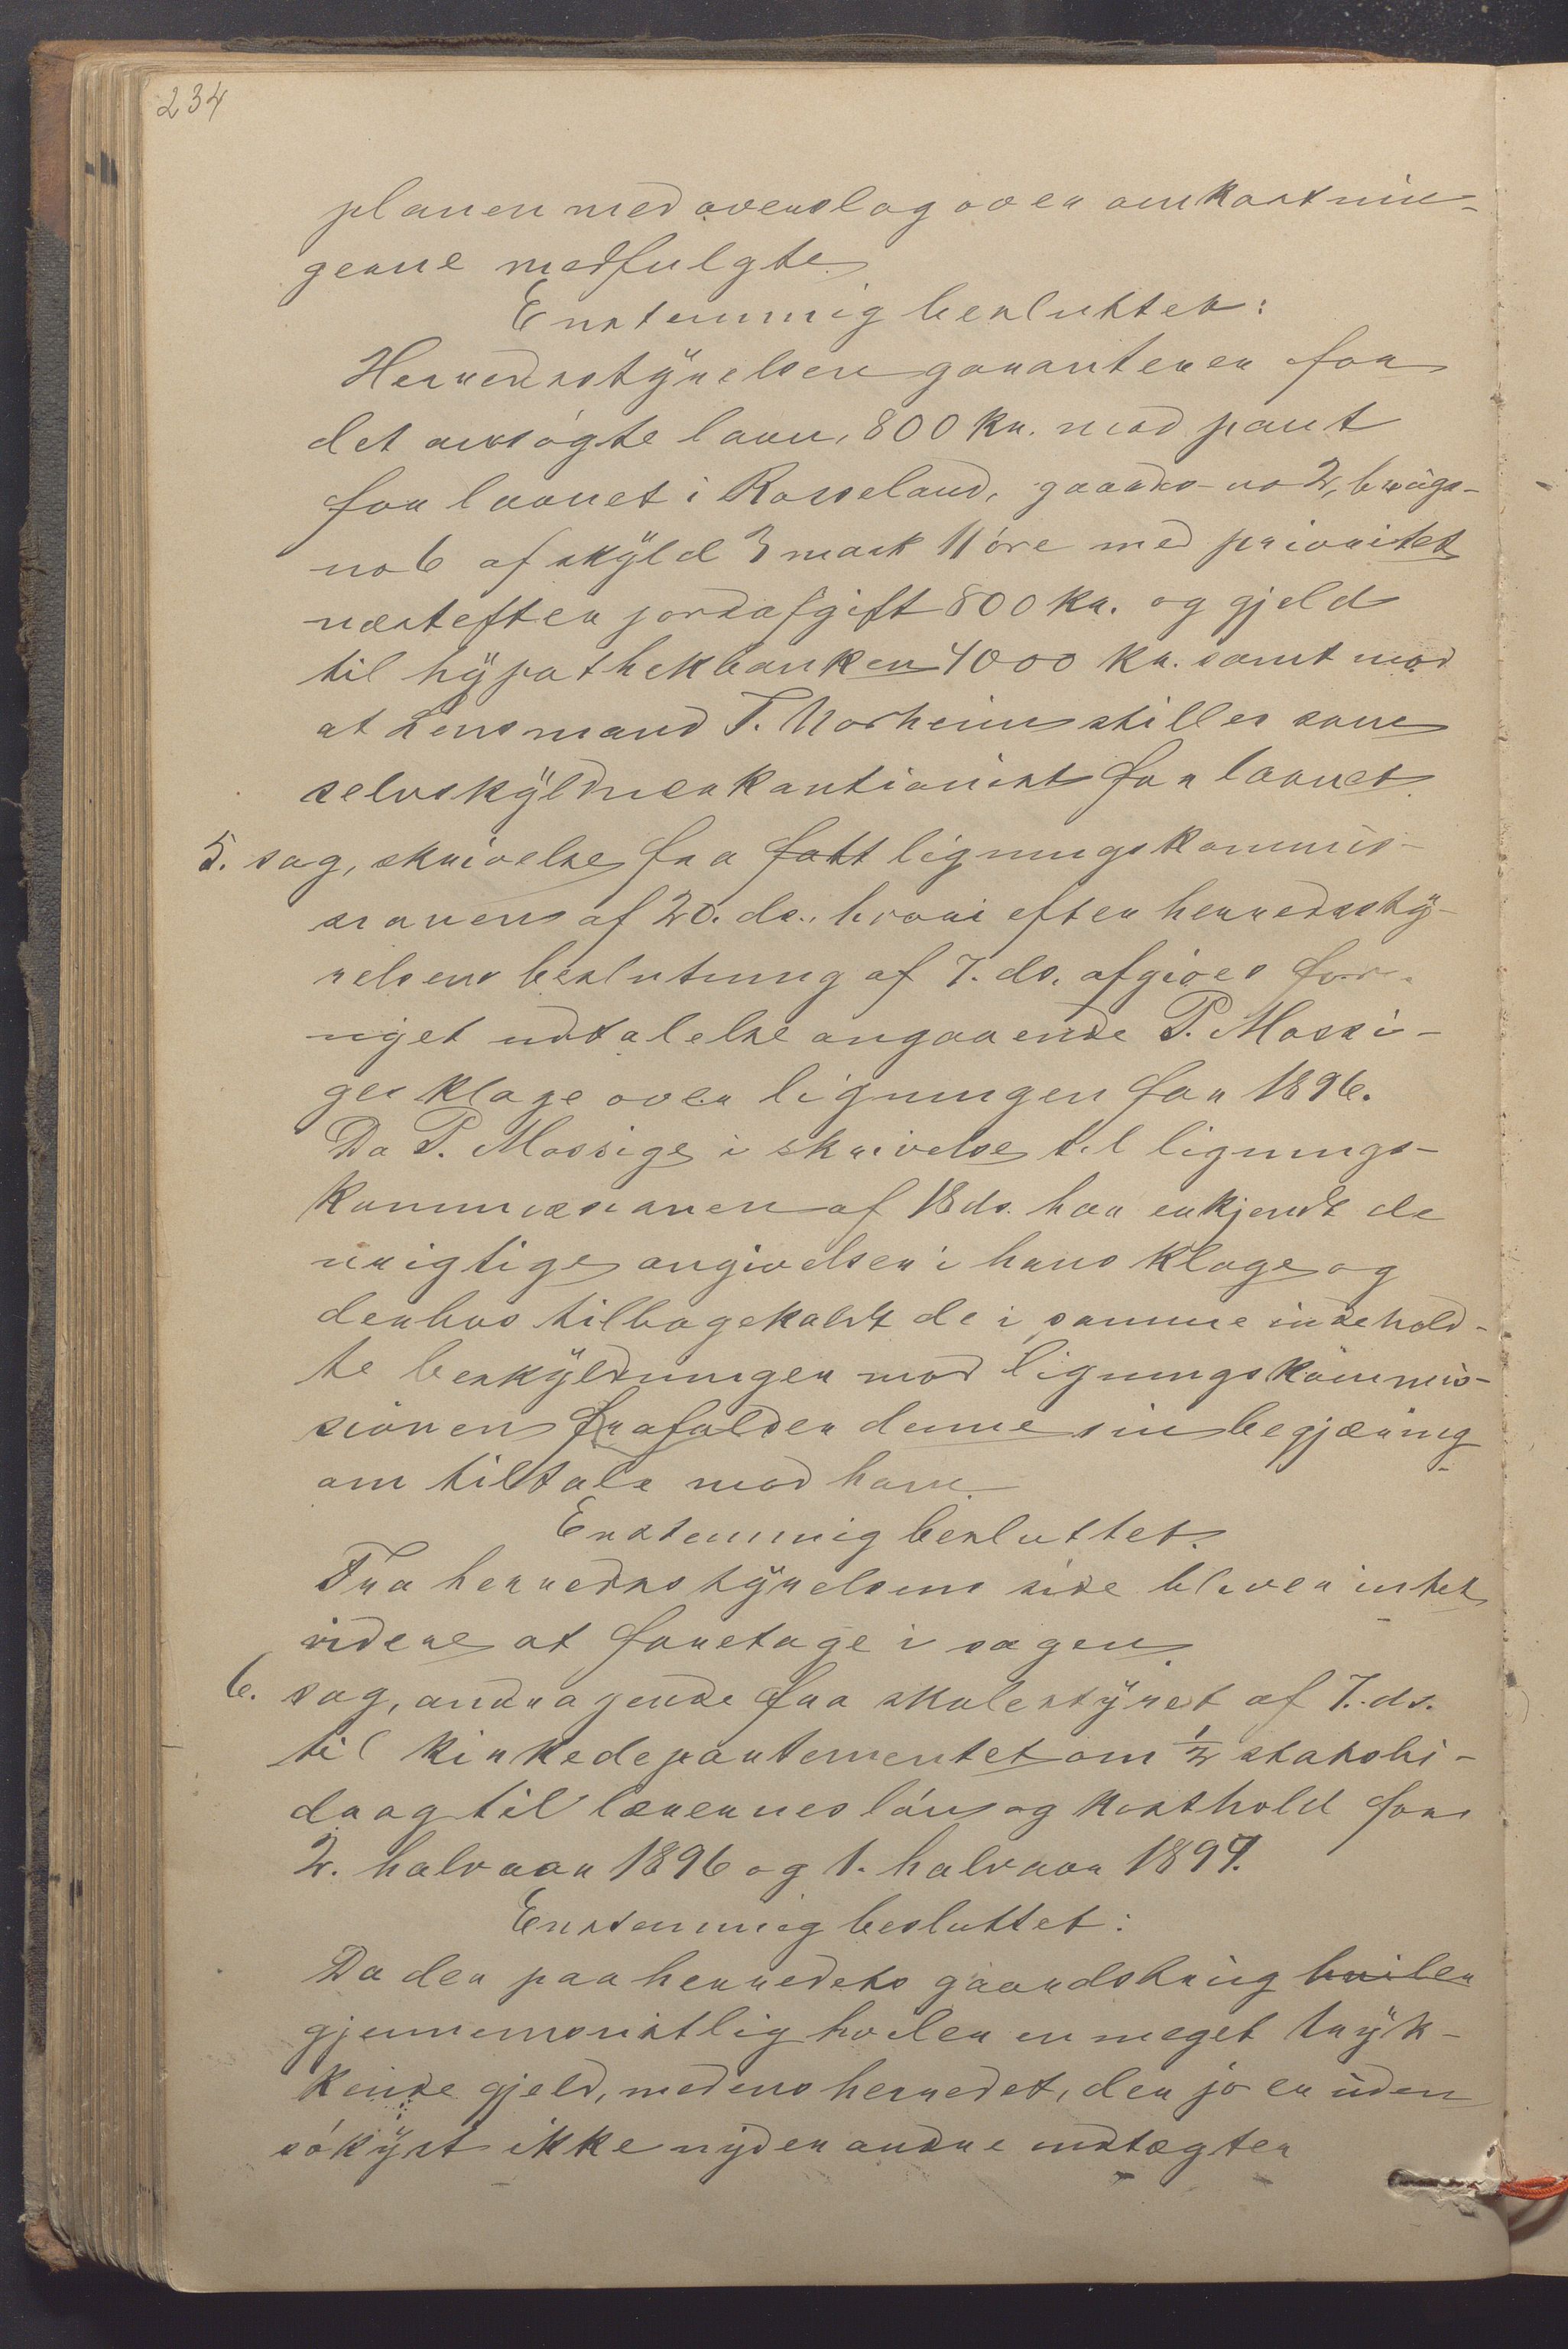 234
planen med overslag over omkostnin-
gerne medfulgte.
Enstemmig besluttet:
Herredsstyrelsen garanterer for
det ansøgte laan, 800 kr. mod pant
for laanet i Rosseland, gaards-no 2, brugs-
no 6 af skyld 3 mark 11 øre med prioritet
næstefter jordafgift 800 kr. og gjeld
til hypothekbanken 4000 kr. samt mod
at Lensmand T. Norheim stilles som
selvskyldnerkautionist for laanet.
5. sag, skrivelse fra fatt ligningskommis-
sionen af 20. ds., hvori efter herredssty-
relsens beslutning af 7. ds. afgives for-
nyet udtalelse angaaende P. Mossi-
ges klage over ligningen for 1896.
Da P. Mossige i skrivelse til lignings-
kommissionen af 18 ds. har erkjendt de
urigtige angivelser i hans klage og
derhos tilbagekaldt de i samme indehold-
te beskyldninger mod ligningskommis-
sionen frafalder denne sin begjæring
om tiltale mod ham.
Enstemmig besluttet.
Fra herredsstyrelsens side bliver intet
videre at foretage i sagen.
6. sag, andragende fra skolestyret af 7. ds.
til kirkedepartementet om 1/2 statsbi-
drag til lærernes løn og kosthold for
2. halvaar 1896 og 1. halvaar 1897.
Enstemmig besluttet:
Da der paa herredets gaardsbrug hviler
gjennemsnitlig hviler en meget tryk-
kende gjeld, medens herredet, der jo er uden
søkyst ikke nyder andre indtægter